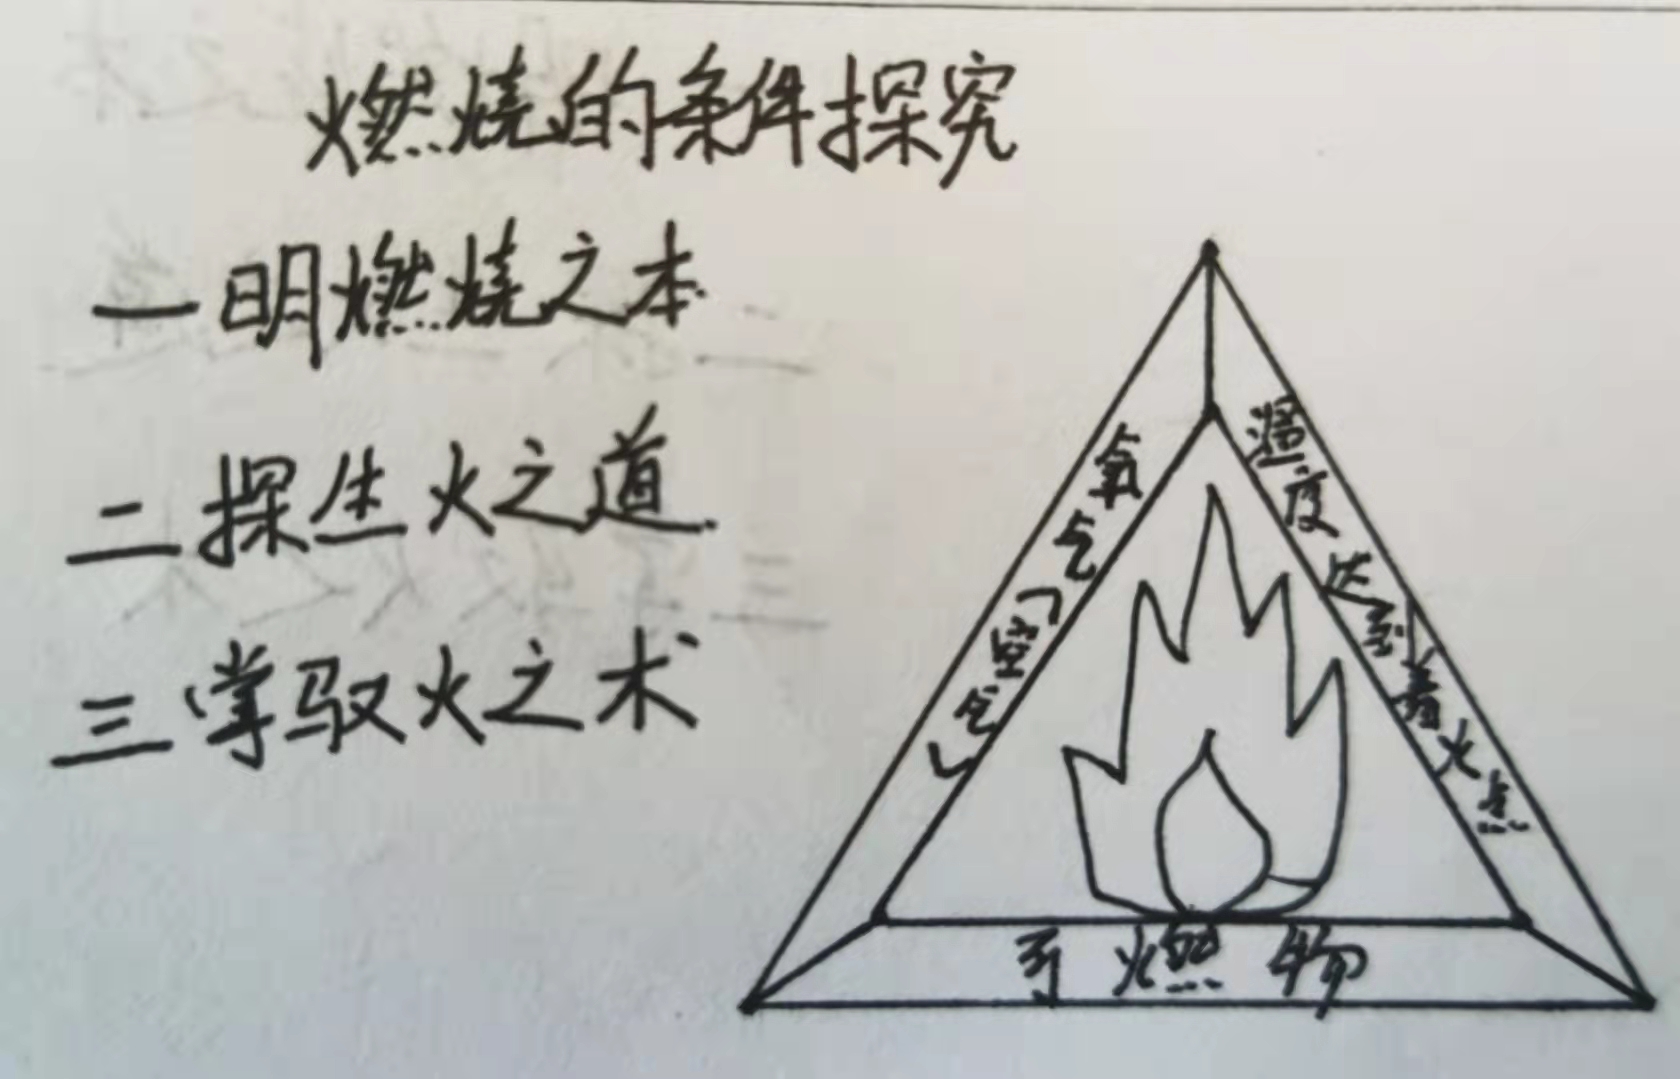 燃烧的条件探究
一明燃烧之本
二探生火之道
三掌驭火之术
氧气(空气)
温度达到着火点
可燃物